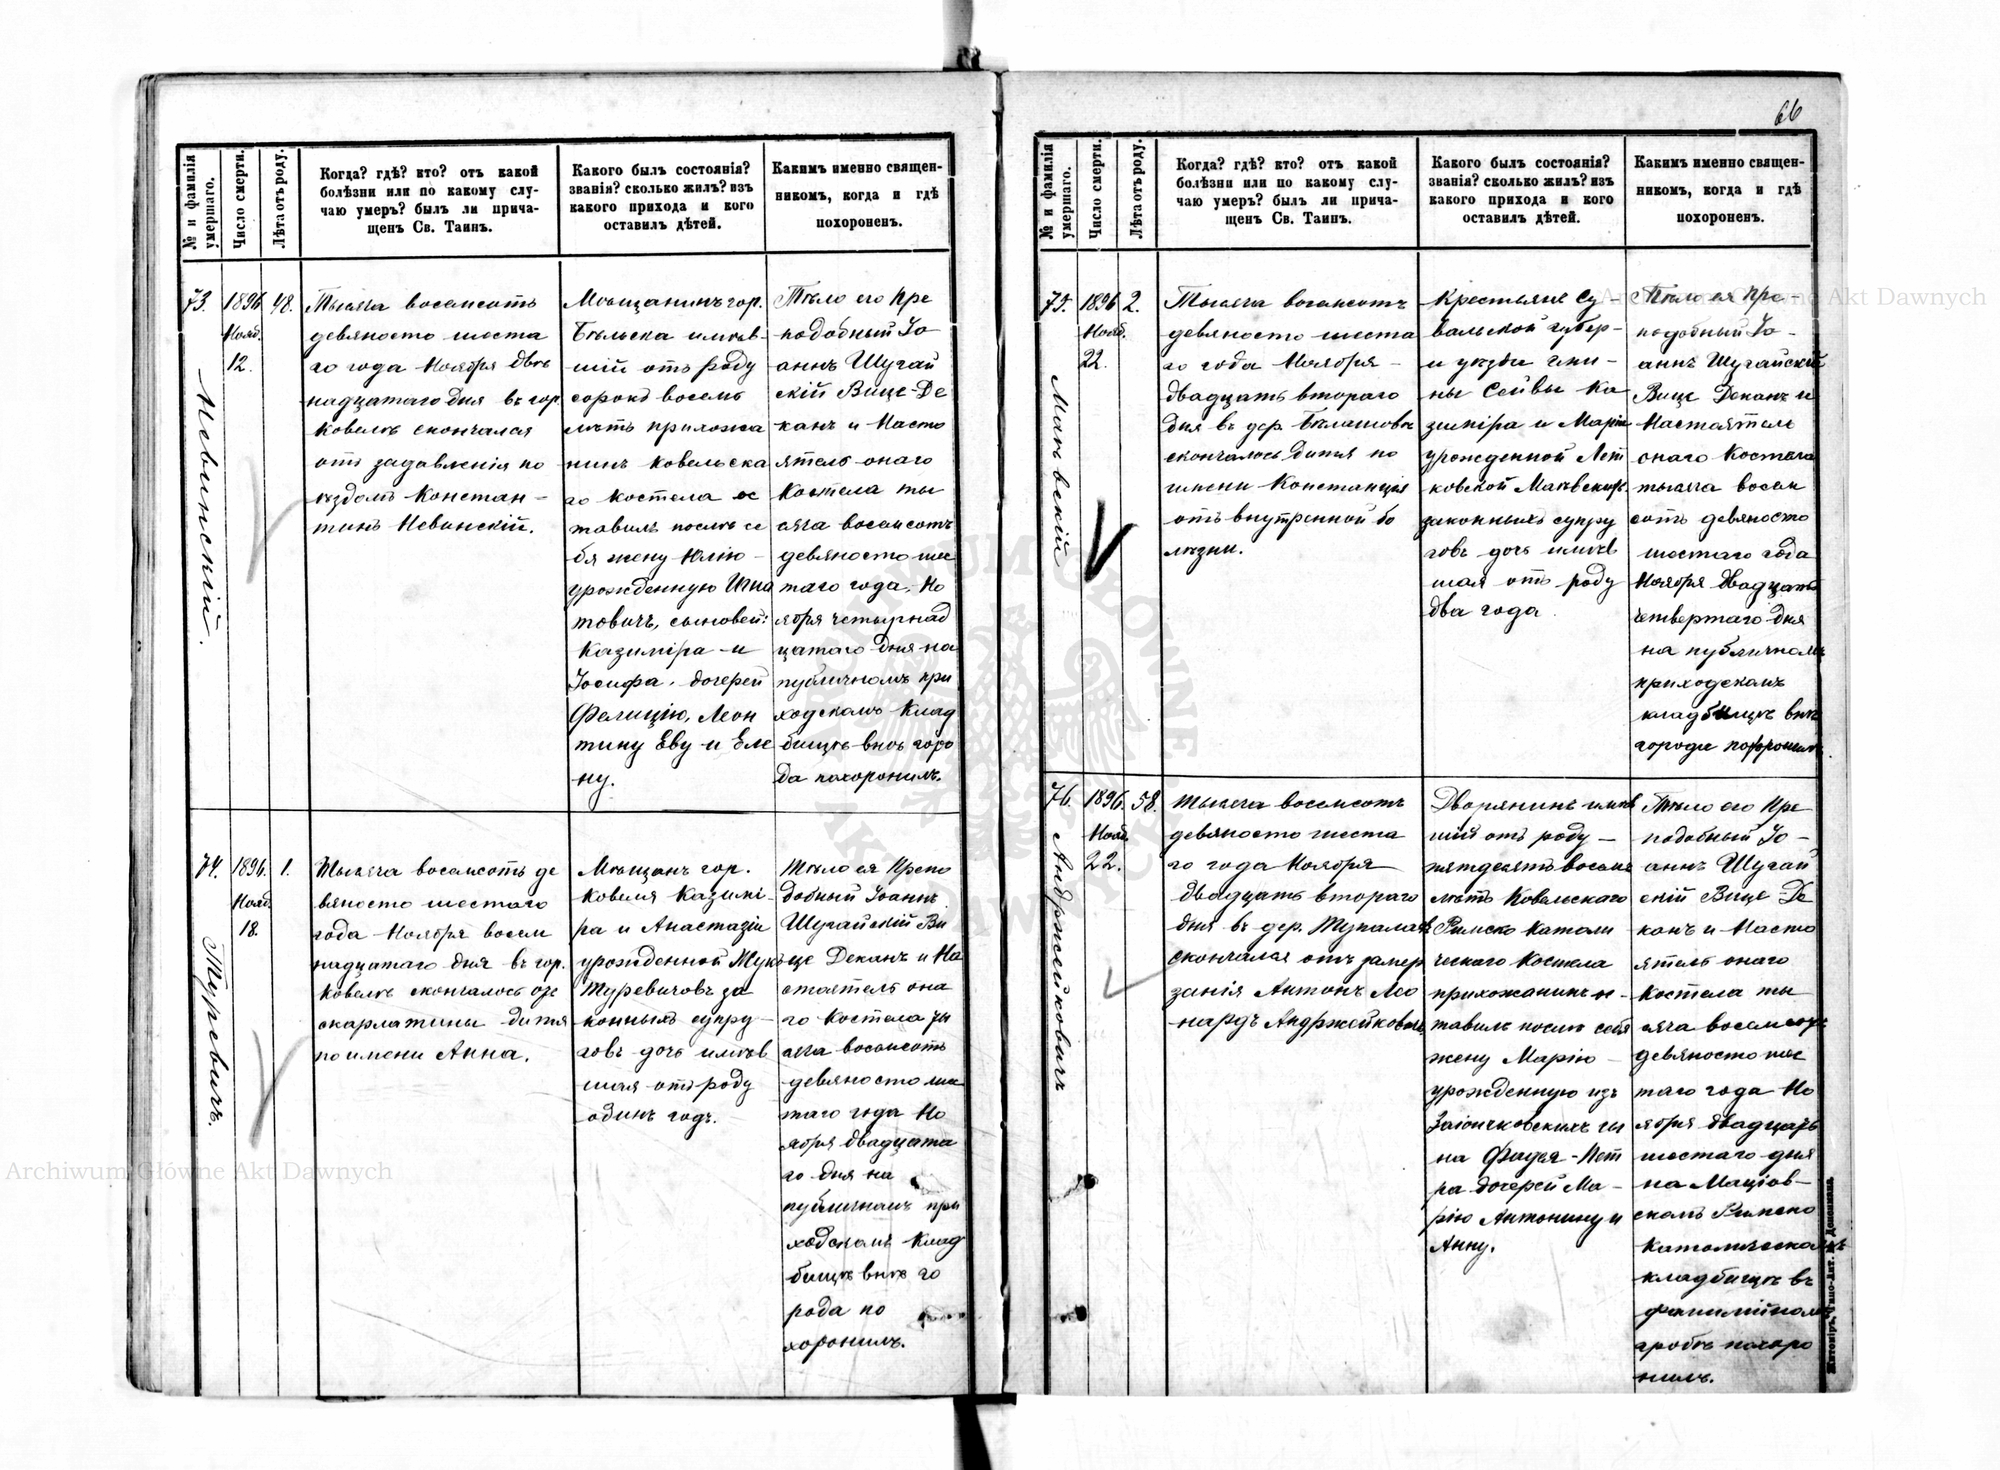 66
№ и фамилія умершаго.
Число смерти.
Лѣта отъ роду.
Когда? гдѣ? кто? отъ какой
болѣзни или по какому слу-
чаю умеръ? былъ ли прича-
щенъ Св. Таинъ.
Какого былъ состоянія?
званія? сколько жилъ? изъ
какого прихода и кого
оставилъ дѣтей.
Какимъ именно священ-
никомъ, когда и гдѣ
похороненъ.
73.
Невинскій.
1896
Нояб.
12.
48.
Тысяча восемсотъ
девяносто шеста
го года Ноября двѣ
надцатаго дня въ гор.
Ковелѣ скончался
отъ задавленія по
ѣздомъ Констан-
тинъ Невинскій.
Мѣщанинъ гор.
Бѣльска имѣв-
шій отъ роду
сорокъ восемь
лѣтъ прихожа
нинъ Ковельска
го Костела ос
тавилъ послѣ се
бя жену Юлію -
урожденную Игна
товичъ, сыновей:
Казиміра и
Іосифа, дочерей
Фелицію, Леон
тину Еву и Еле
ну.
Тѣло его Пре
подобный Іо
аннъ Шугай
скій Вице-Де
канъ и Насто
ятель онаго
Костела ты
сяча восемсотъ
девяносто шес
таго года Но
ября четырнад
цатаго дня на
публичномъ при
ходскомъ клад
бищѣ внѣ горо
да похоронилъ.
74.
Туревичъ.
1896.
Нояб.
18.
1.
Тысяча восемсотъ де
вяносто шестаго
года Ноября восем
надцатаго дня въ гор.
Ковелѣ скончалось отъ
скарлатины дитя
по имени Анна.
Мѣщанъ гор.
Ковеля Казимі-
ра и Анастазіи
урожденной Жукъ
Туревичовъ за
конныхъ супру-
говъ дочь имѣв
шая отъ роду
одинъ годъ.
Тѣло ея Препо
добный Іоаннъ
Шугайскій Ви
це Деканъ и На
стоятель она
го Костела ты
сяча восемсотъ
девяносто шес
таго года Но
ября двадцата
го дня на
публичномъ при
ходскомъ клад
бищѣ внѣ го
рода по
хоронилъ.
№ и фамилія умершаго.
Число смерти.
Лѣта отъ роду.
Когда? гдѣ? кто? отъ какой
болѣзни или по какому слу-
чаю умеръ? былъ ли прича-
щенъ Св. Таинъ.
Какого былъ состоянія?
званія? сколько жилъ? изъ
какого прихода и кого
оставилъ дѣтей.
Какимъ именно священ-
никомъ, когда и гдѣ
похороненъ.
75.
1896
Нояб.
22.
2.
Тысяча восемсотъ
девяносто шеста
го года Ноября -
двадцать втораго
дня въ дер.
скончалось дитя по
имени Констанція
отъ внутренной бо
лѣзни.
Крестьяне Су-
вальской губер-
и уѣзда гми-
ны Сейвы Ка
зиміра и Маріи
урожденной
законныхъ супру
говъ дочь имѣв
шая отъ роду
два года.
Тѣло ея Пре-
подобный Іо-
аннъ Шугайскій
Вице Деканъ и
Настоятель
онаго Костела
тысяча восем
сотъ девяносто
шестаго года
Ноября двадцать
четвертаго дня
на публичномъ
приходскомъ
кладбищѣ внѣ
города похоронилъ.
76.
Андржейковичъ
1896.
Нояб.
22.
58.
Тысяча восемсотъ
девяносто шеста
го года Ноября
двадцать втораго
дня въ дер. Тупалахъ
скончался отъ замер
занія Антонъ Лео
нардъ Андржейковичъ
Дворянинъ имѣв
шій отъ роду -
пятдесятъ восемь
лѣтъ Ковельскаго
Римско Католи
ческаго Костела
прихожанинъ
тавилъ послѣ себя
жену Марію -
урожденную изъ
Заіончковскихъ сы
на Фадея-Пет
ра дочерей Ма-
рію Антонину и
Анну.
Тѣло его Пре
подобный Іо-
аннъ Шугай
скій Вице-Де
канъ и Насто
ятель онаго
Костела ты
сяча восемсотъ
девяносто шес
таго года Но
ября двадцать
шестаго дня
на Маціов-
скомъ Римско
Католическомъ
кладбищѣ въ
фамилійномъ
гробѣ похоро
нилъ.
Archiwum Główne Akt Dawnych
Archiwum Główne Akt Dawnych